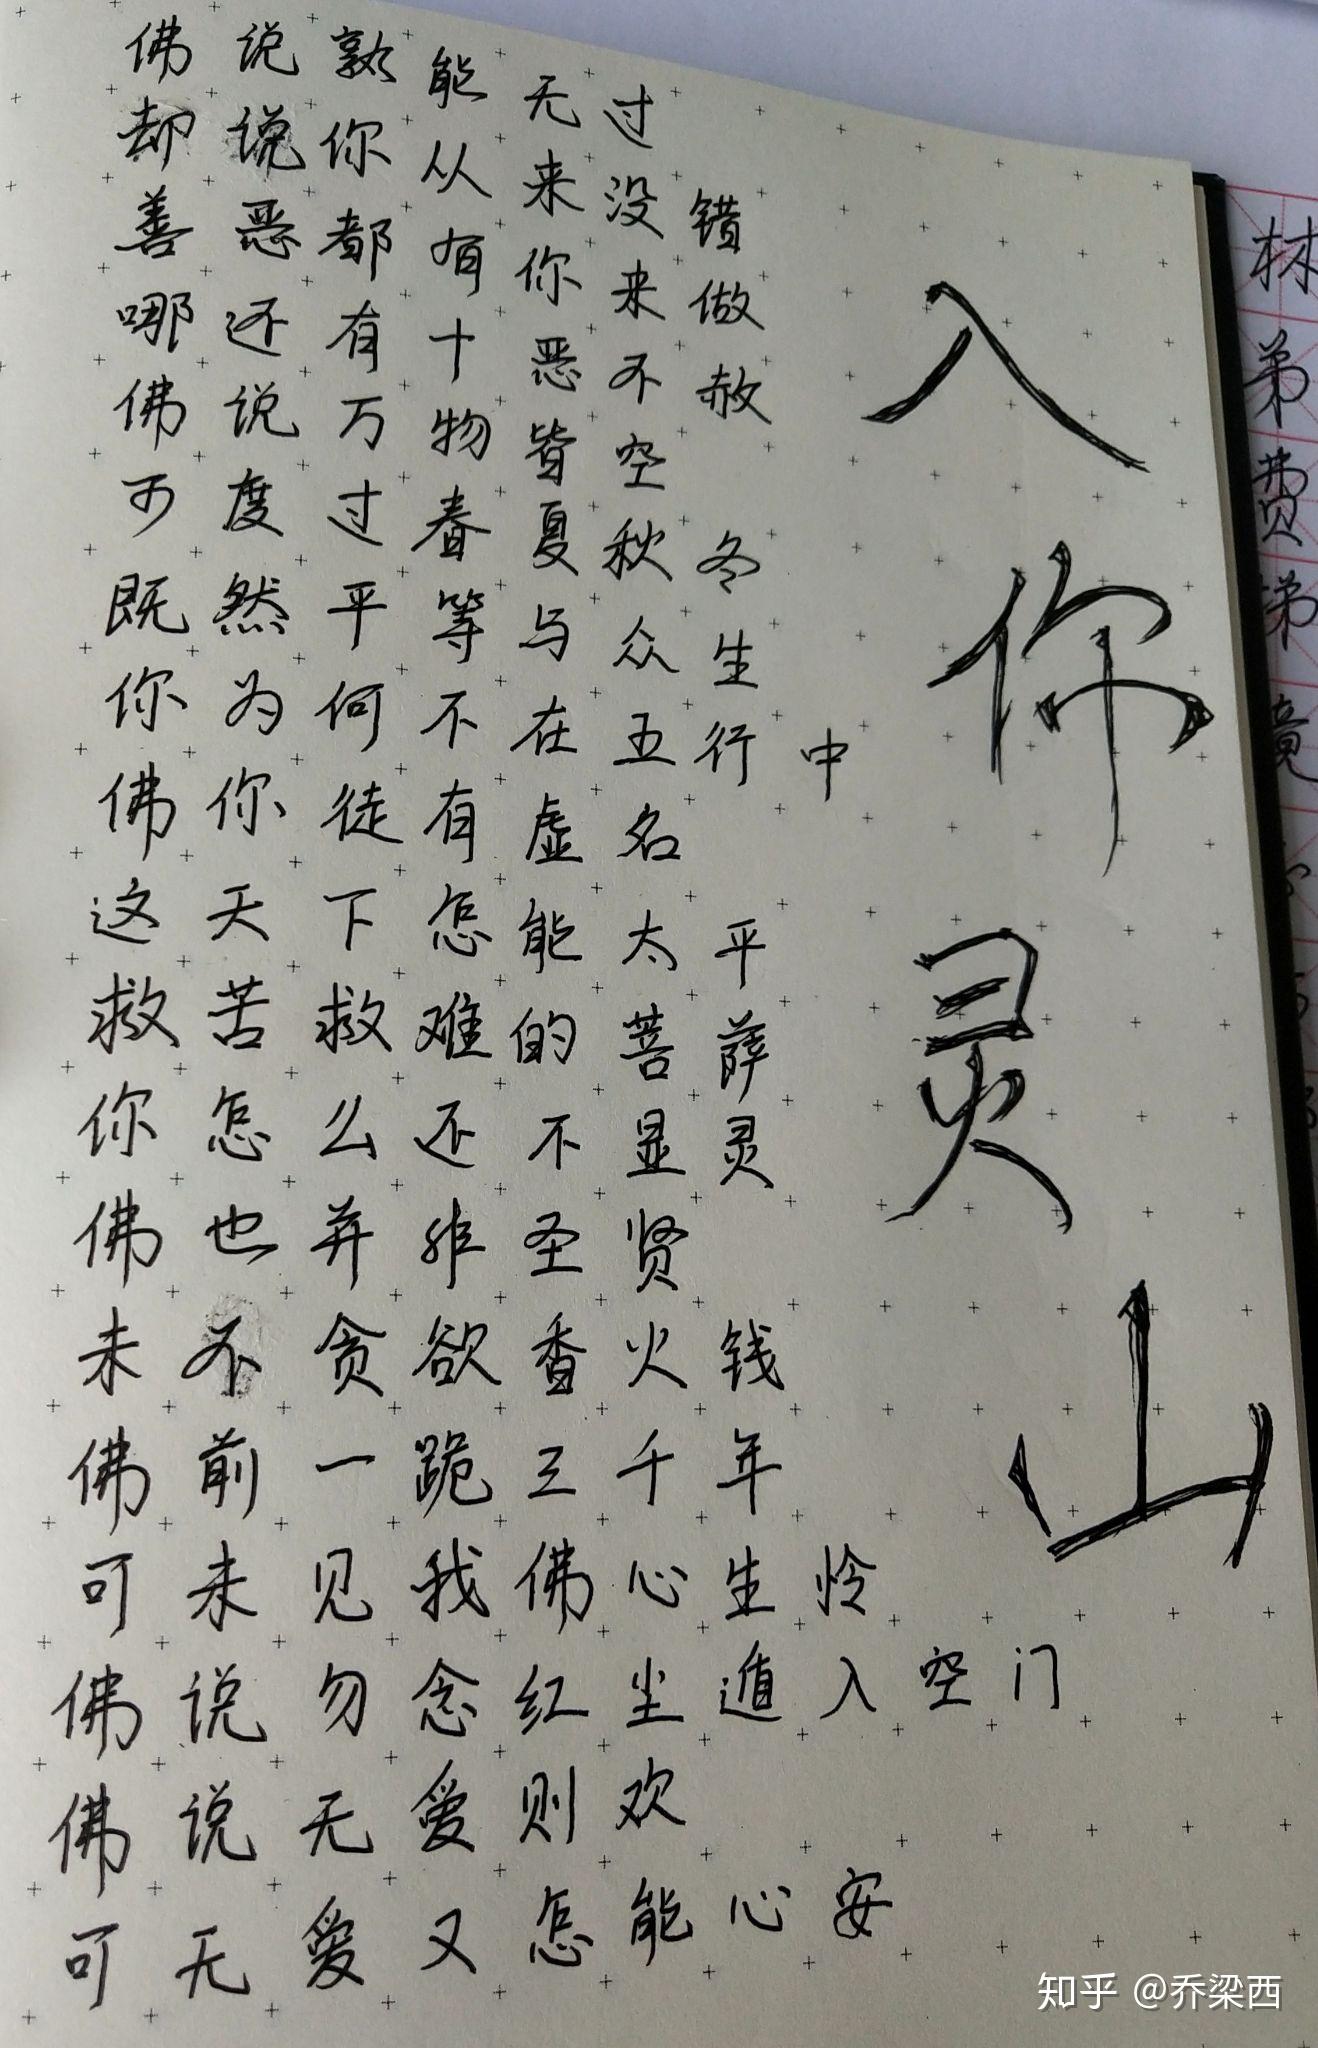 佛说孰能无过
却说你从来没错
善恶都有你来做
哪还有十恶不赦
佛说万物皆空
可度过春夏秋冬
既然平等与众生
你为何不在五行中
佛你徒有虚名
这天下怎能太平
救苦救难的菩萨
你怎么还不显灵
佛也并非圣贤
未不贪欲香火钱
佛前一跪三千年
可未见我佛心生怜
佛说勿念红尘遁入空门
佛说无爱则欢
可无爱又怎能心安
入你灵山
林
弟
费
梯
境
知乎 @乔梁西